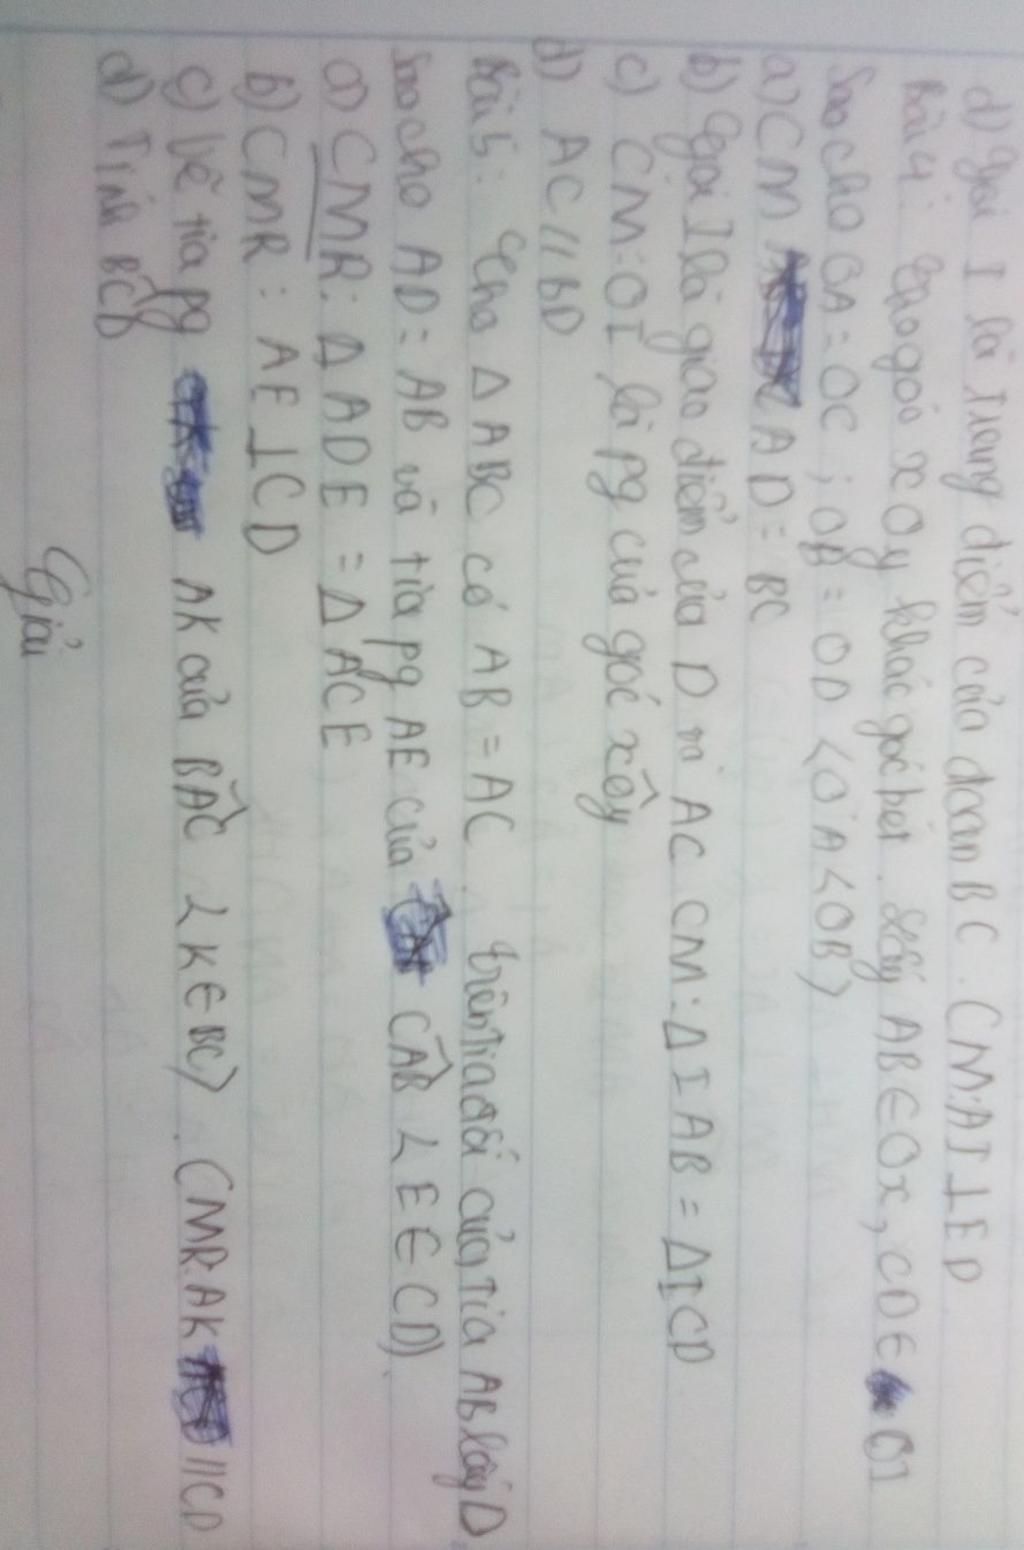 d) gọi I là trung điểm của đoạn BC. CM: AI ⊥ ED
Bài 4: Cho góc xOy khác góc bẹt. Lấy AB ∈ Ox, CD ∈ Oy
Sao cho OA = OC ; OB = OD < OA < OB >
a) CM AD = BC
b) Gọi I là giao điểm của D và AC CM: Δ IAB = Δ ICD
c) CM: OI là pg của góc xOy
d) AC // BD
Bài 5: Cho Δ ABC có AB = AC. trên tia đối của tia AB lấy D
Sao cho AD = AB và tia pg AE của CAB < E ∈ CD)
a) CMR: Δ ADE = Δ ACE
b) CMR: AE ⊥ CD
c) Vẽ tia pg AK của BAC < K ∈ BC>. CMR AK // CD
d) Tính BCD
Giải